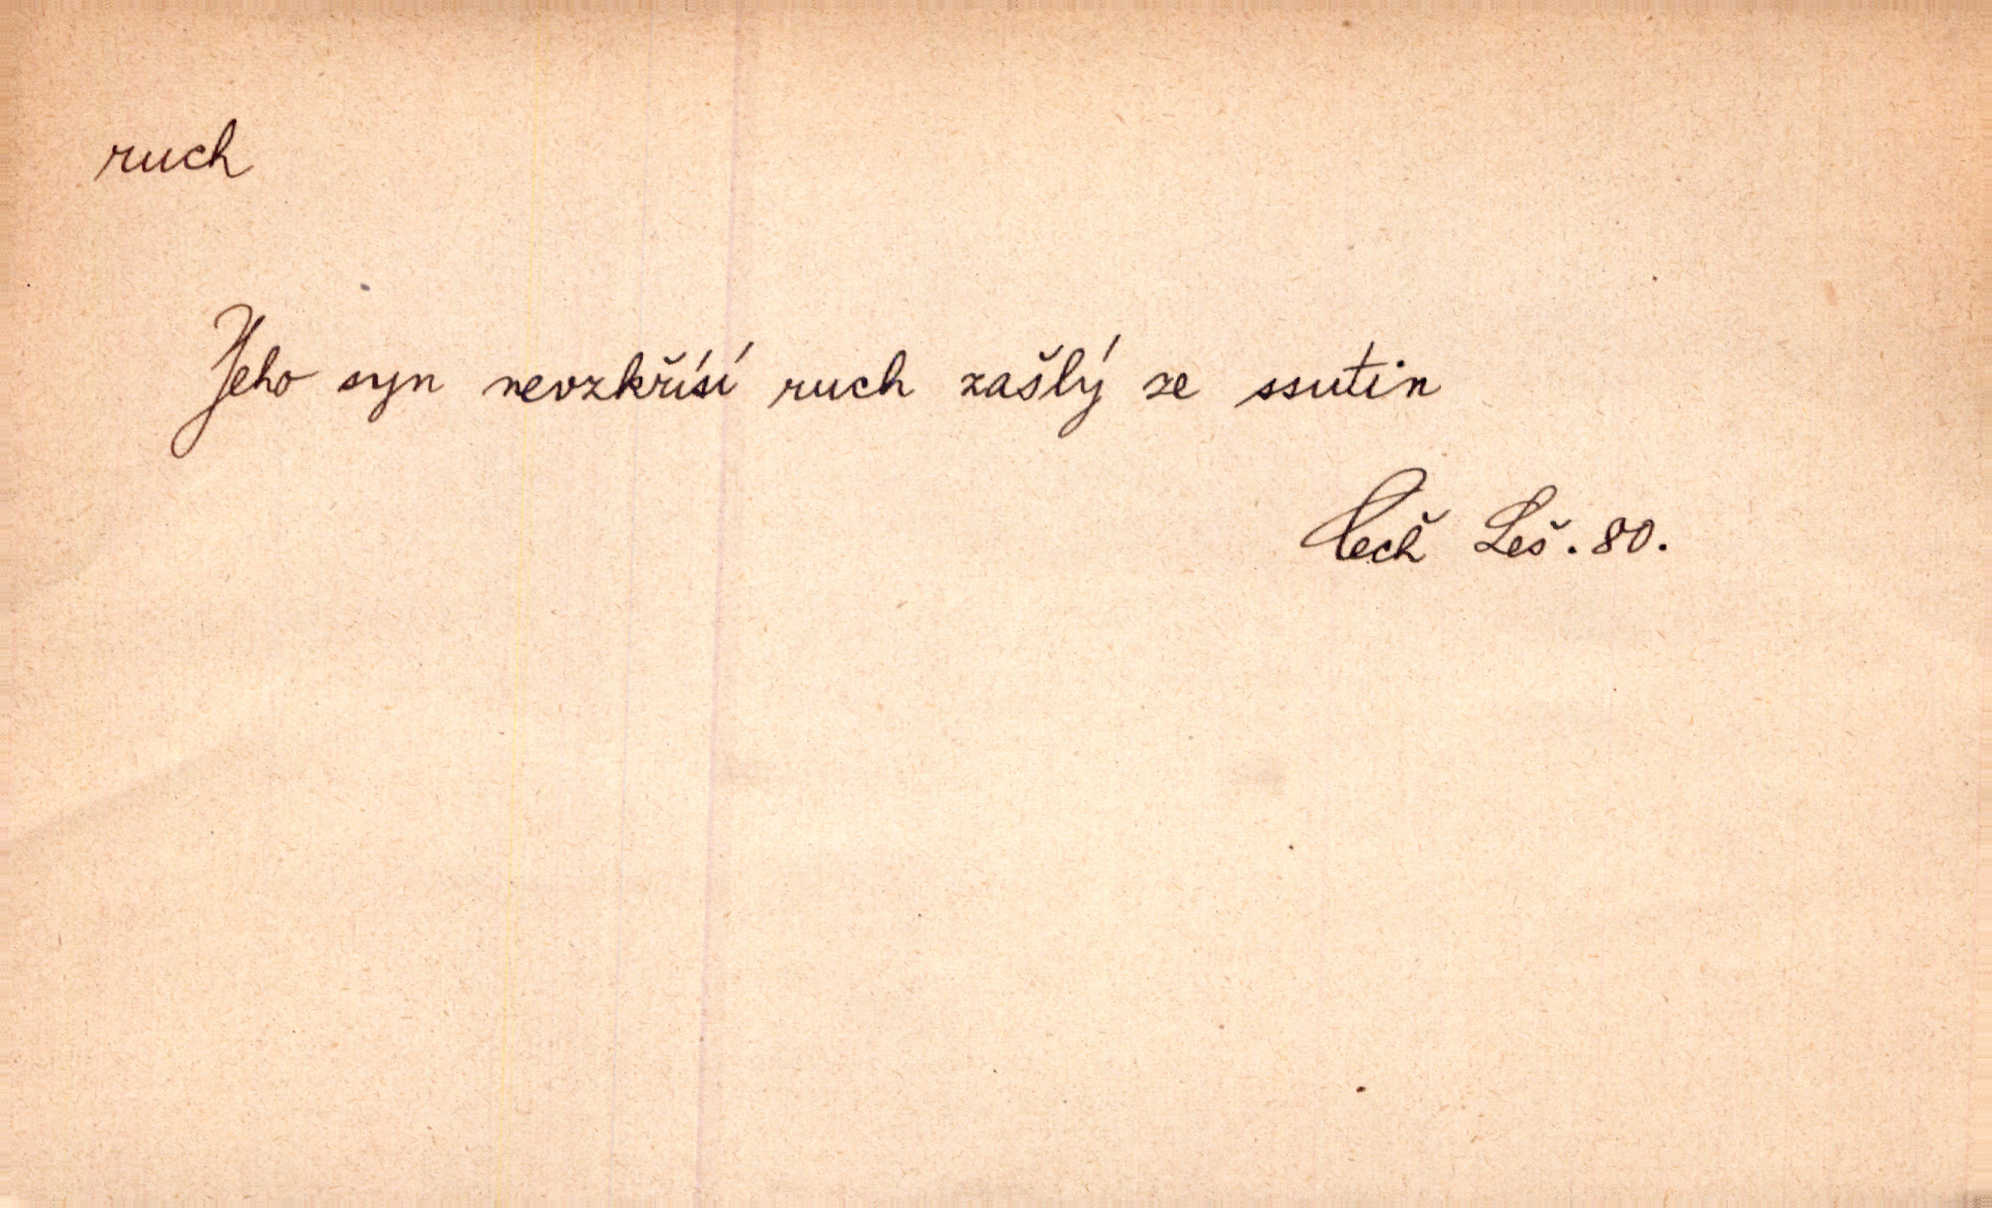 ruch
Jeho syn nevzkřísí ruch zašlý ze ssutin
Čech Leš. 80.